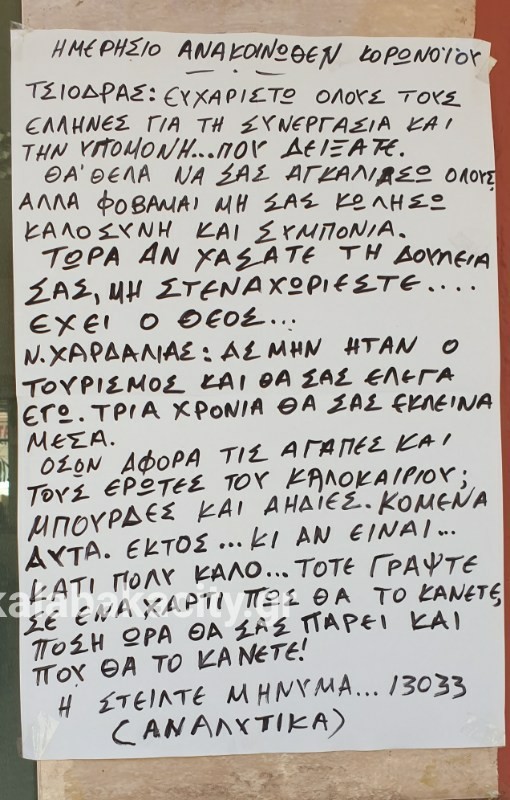 ΗΜΕΡΗΣΙΟ ΑΝΑΚΟΙΝΩΘΕΝ ΚΟΡΩΝΟΪΟΥ
ΤΣΙΟΔΡΑΣ: ΕΥΧΑΡΙΣΤΩ ΟΛΟΥΣ ΤΟΥΣ
ΕΛΛΗΝΕΣ ΓΙΑ ΤΗ ΣΥΝΕΡΓΑΣΙΑ ΚΑΙ
ΤΗΝ ΥΠΟΜΟΝΗ...ΠΟΥ ΔΕΙΞΑΤΕ.
ΘΑ'ΘΕΛΑ ΝΑ ΣΑΣ ΑΓΚΑΛΙΑΣΩ ΟΛΟΥΣ
ΑΛΛΑ ΦΟΒΑΜΑΙ ΜΗ ΣΑΣ ΚΩΛΗΣΩ
ΚΑΛΟΣΥΝΗ ΚΑΙ ΣΥΜΠΟΝΙΑ.
ΤΩΡΑ ΑΝ ΧΑΣΑΤΕ ΤΗ ΔΟΥΛΕΙΑ
ΣΑΣ, ΜΗ ΣΤΕΝΑΧΩΡΙΕΣΤΕ....
ΕΧΕΙ Ο ΘΕΟΣ...
Ν.ΧΑΡΔΑΛΙΑΣ: ΑΣ ΜΗΝ ΗΤΑΝ Ο
ΤΟΥΡΙΣΜΟΣ ΚΑΙ ΘΑ ΣΑΣ ΕΛΕΓΑ
ΕΓΩ. ΤΡΙΑ ΧΡΟΝΙΑ ΘΑ ΣΑΣ ΕΚΛΕΙΝΑ
ΜΕΣΑ.
ΟΣΩΝ ΑΦΟΡΑ ΤΙΣ ΑΓΑΠΕΣ ΚΑΙ
ΤΟΥΣ ΕΡΩΤΕΣ ΤΟΥ ΚΑΛΟΚΑΙΡΙΟΥ;
ΜΠΟΥΡΔΕΣ ΚΑΙ ΑΗΔΙΕΣ. ΚΟΜΕΝΑ
ΑΥΤΑ. ΕΚΤΟΣ... ΚΙ ΑΝ ΕΙΝΑΙ...
ΚΑΤΙ ΠΟΛΥ ΚΑΛΟ... ΤΟΤΕ ΓΡΑΨΤΕ
kalabakacity.gr
ΣΕ ΕΝΑ ΧΑΡΤΙ ΠΩΣ ΘΑ ΤΟ ΚΑΝΕΤΕ,
ΠΟΣΗ ΩΡΑ ΘΑ ΣΑΣ ΠΑΡΕΙ ΚΑΙ
ΠΟΥ ΘΑ ΤΟ ΚΑΝΕΤΕ!
Η ΣΤΕΙΛΤΕ ΜΗΝΥΜΑ... 13033
(ΑΝΑΛΥΤΙΚΑ)